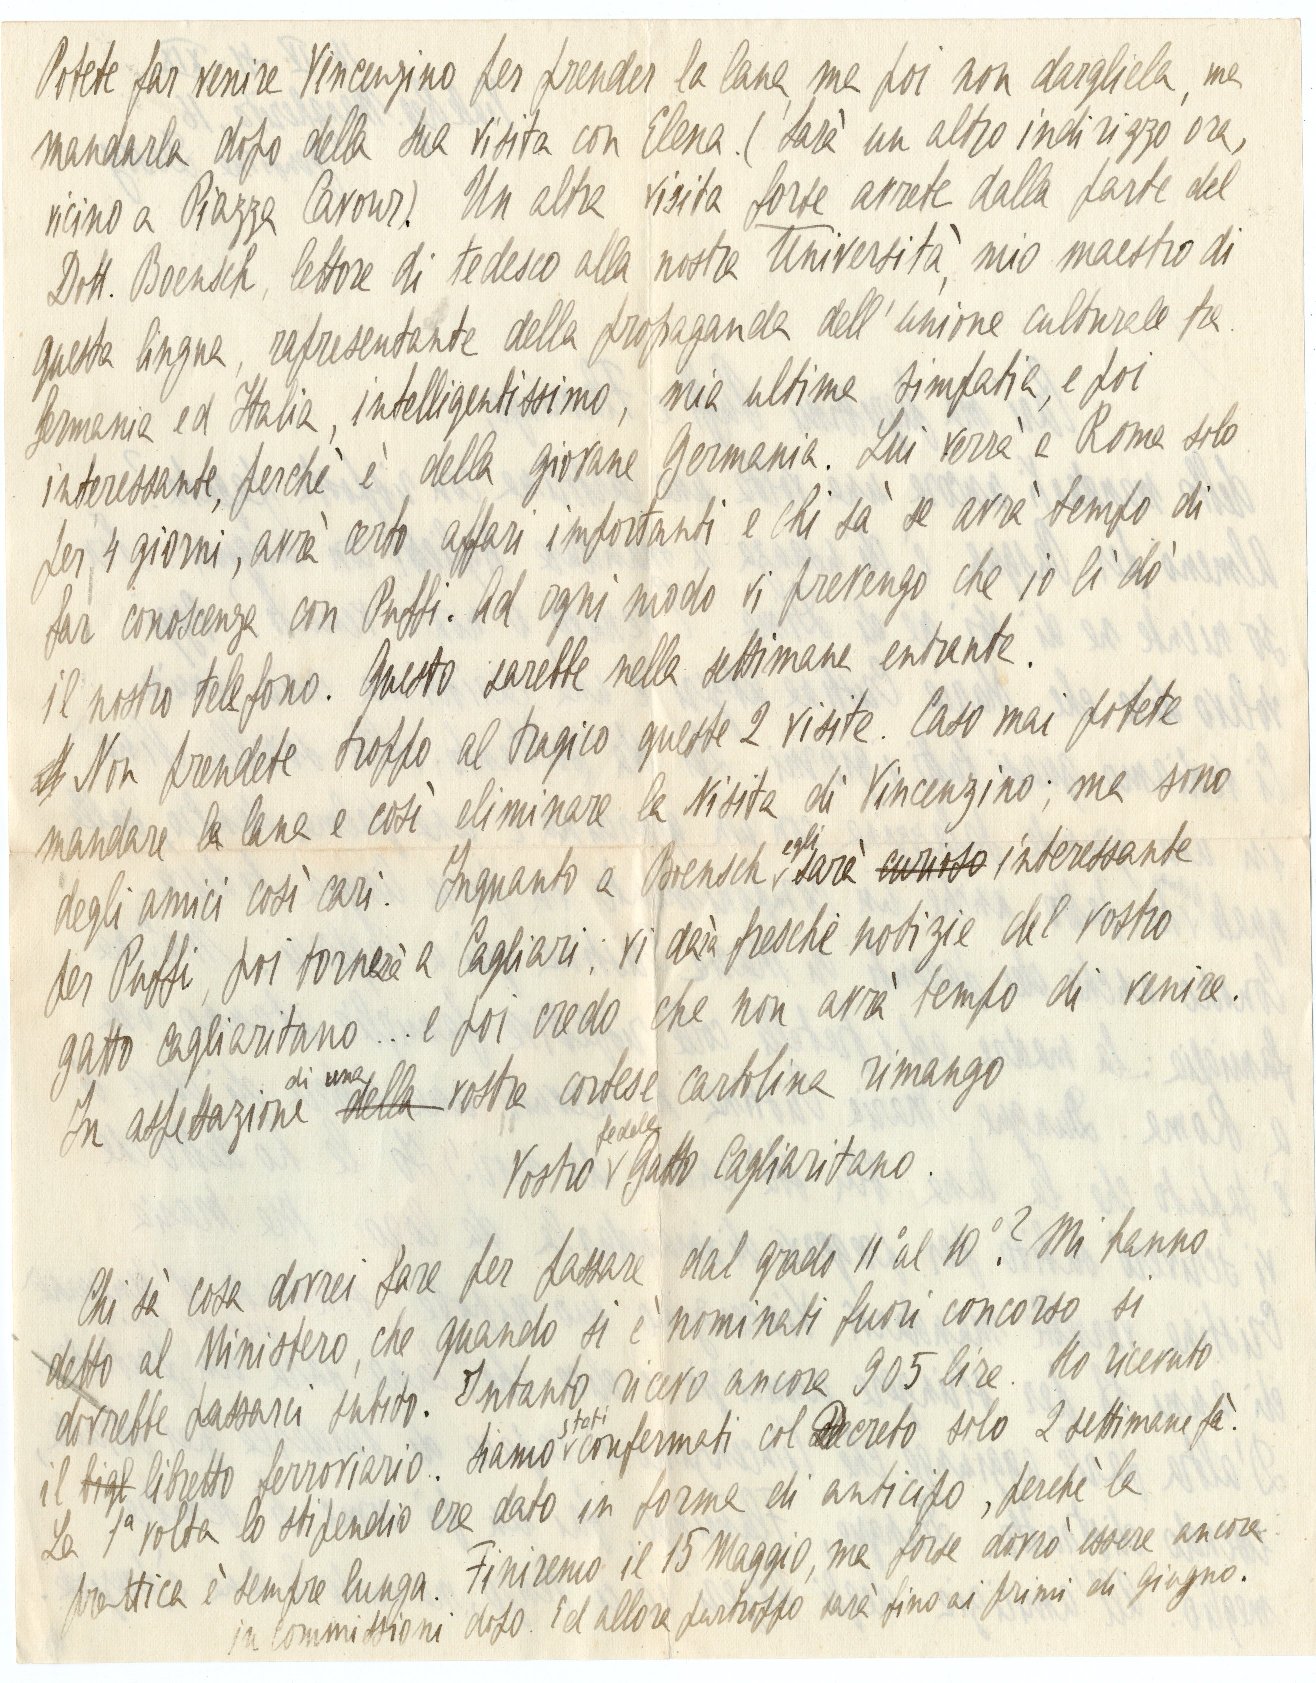 Potete far venire Vincenzino per prender la lana, ma poi non dargliela, ma
mandarla dopo della sua visita con Elena. (Sarà un altro indirizzo ora,
vicino a Piazza Cavour). Un altra visita forse avrete dalla parte del
Dott. Boensch, lettore di tedesco alla nostra Università, mio maestro di
questa lingua, rapresentante della propaganda dell'unione culturale tra
Germania ed Italia, intelligentissimo, mia ultima simpatia, e poi
interessante, perchè è della giovane Germania. Lui verrà a Roma solo
per 4 giorni, avrà certo affari importanti e chi sà se avrà tempo di
far conoscenza con Puffi. Ad ogni modo vi prevengo che io li dò
il nostro telefono. Questo sarebbe nella settimana entrante.
Non prendete troppo al tragico queste 2 visite. Caso mai potete
mandare la lana e così eliminare la visita di Vincenzino; ma sono
degli amici così cari. Inquanto a Boensch egli sarà curioso interessante
per Puffi, poi tornerà a Cagliari, vi darà fresche notizie del vostro
gatto cagliaritano... e poi credo che non avrà tempo di venire.
In aspettazione di una della vostra cortese cartolina rimango
Vostro fedele Gatto Cagliaritano.
Chi sà cosa dovrei fare per passare dal grado 11° al 10°? Mi hanno
detto al Ministero, che quando si è nominati fuori concorso si
dovrebbe passarci subito. Intanto ricevo ancora 905 lire. Ho ricevuto
il bigl libretto ferroviario. Siamo stati confermati col Decreto solo 2 settimane fà.
La 1ª volta lo stipendio era dato in forma di anticipo, perchè la
prattica è sempre lunga. Finiremo il 15 Maggio, ma forse dovrò essere ancora
in commissioni dopo. Ed allora purtroppo sarà fino ai primi di Giugno.